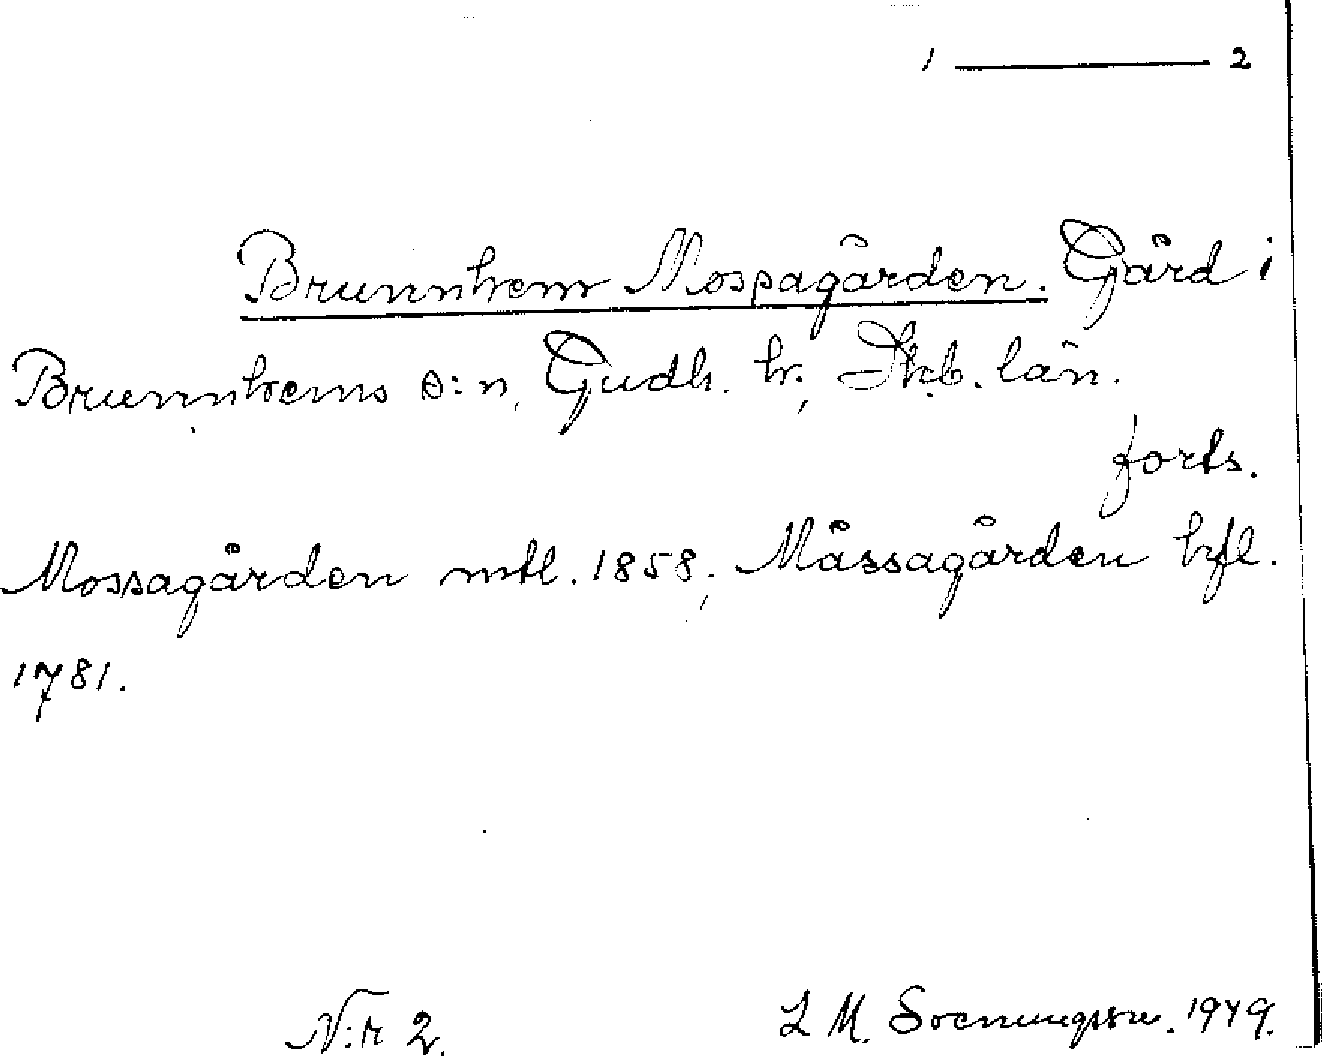 1 ——— 2
Brunnhem Mossagården. Gård i
Brunnhems s:n, Gudh. hr; Skb. län.
forts.
Mossagården mtl. 1858; Måssagården hfl.
1781.
N:r 2. L M. Svenungsson. 1949.